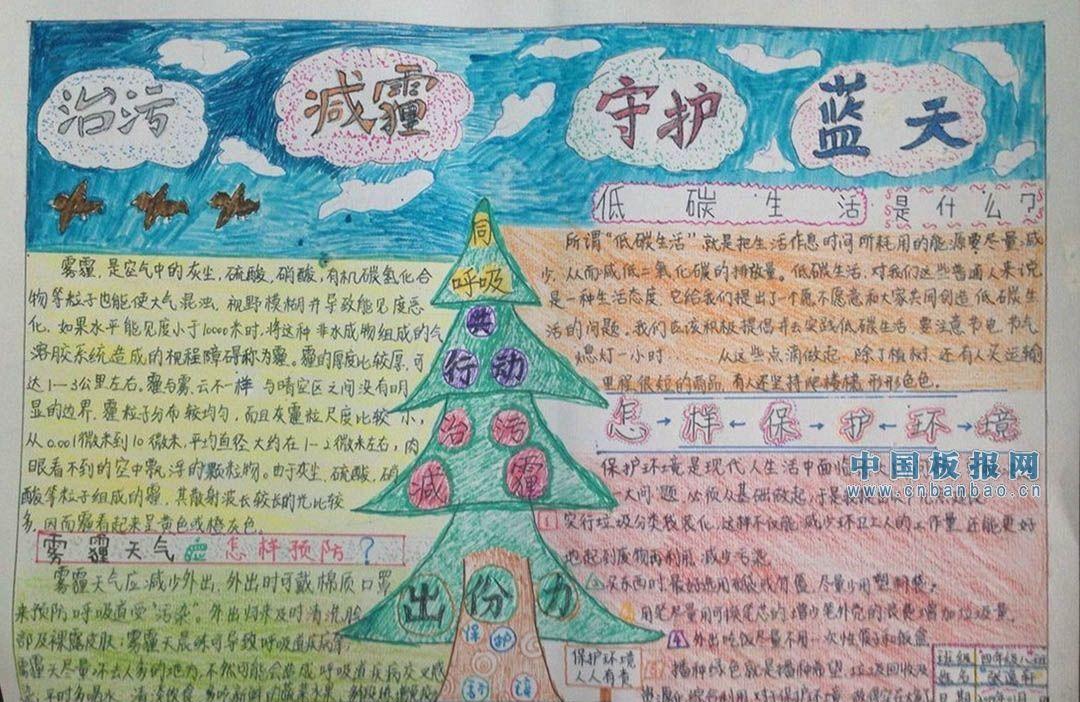 治污 减霾 守护 蓝天
低碳生活是什么?
所谓“低碳生活”就是把生活作息时间所耗用的能源要尽量减
少,从而减低二氧化碳的排放量。低碳生活,对我们这些普通人来说
是一种生活态度,它给我们提出了个愿不愿意和大家共同创造低碳生
活的问题。我们应该积极提倡并去实践低碳生活,要注意节电,节气
熄灯一小时……从这些点滴做起,除了植树,还有人买运输
里程很短的商品,有人还坚持爬楼梯,形形色色。
雾霾,是空气中的灰尘,硫酸,硝酸,有机碳氢化合
物等粒子也能使大气混浊,视野模糊并导致能见度恶
化,如果水平能见度小于10000米时,将这种非水成物组成的气
溶胶系统造成的视程障碍称为霾。霾的厚度比较厚,可
达1-3公里左右,霾与雾、云不一样,与晴空区之间没有明
显的边界,霾粒子分布较均匀,而且灰霾粒尺度比较小,
从0.001微米到10微米,平均直径大约在1-2微米左右,肉
眼看不到的空中飘浮的颗粒物。由于灰尘,硫酸,硝
酸等粒子组成的霾,其散射波长较长的光比较
多,因而霾看起来呈黄色或橙灰色。
雾霾天气怎样预防?
雾霾天气应减少外出,外出时可戴棉质口罩
来预防呼吸道受“污染”。外出归来及时清洗脸
部及裸露皮肤;雾霾天晨咏可导致呼吸道疾病等,
雾霾天尽量不去人多的地方,不然可能会造成呼吸道疾病交叉感
同
呼吸
共
行动
治污
减霾
出份力
保护
环境
怎→样←保→护←环→境
保护环境是现代人生活中面临
一大问题,必须从基础做起,于是
1 实行垃圾分类袋装化,这样不仅能减少环卫工人的工作量,还能更好
地起到废物再利用,减少污染。
2 买东西时,最好选用布袋或竹篮,尽量少用塑料袋。
用笔尽量用可换笔芯的,增少笔外壳的浪费,增加垃圾量。
4 外出吃饭尽量不用一次性筷子和饭盒
5 播种绿色就是播种希望,垃圾回收及
保护环境
人人有责
班级 四年级八班
姓名
日期
中国板报网
www.cnbanbao.cn